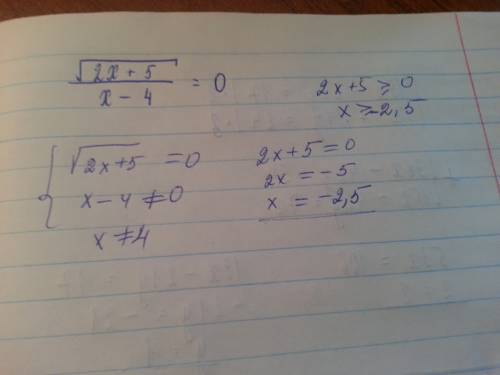 √(2x + 5) / (x - 4) = 0
2x+5 ⩾ 0
x ⩾ -2,5
{ √(2x+5) = 0
x - 4 ≠ 0
x ≠ 4
2x+5 = 0
2x = -5
x = -2,5